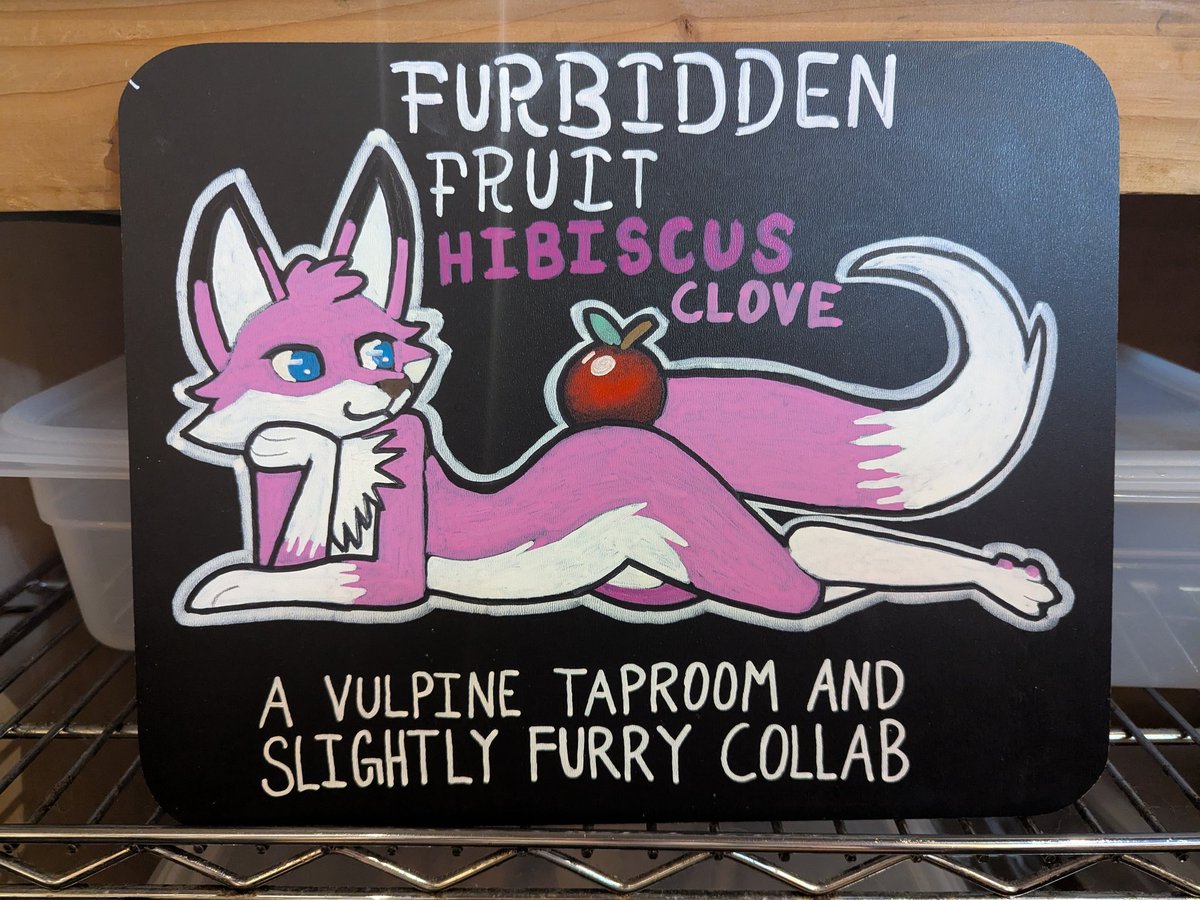 FURBIDDEN
FRUIT
HIBISCUS
CLOVE
A VULPINE TAPROOM AND
SLIGHTLY FURRY COLLAB